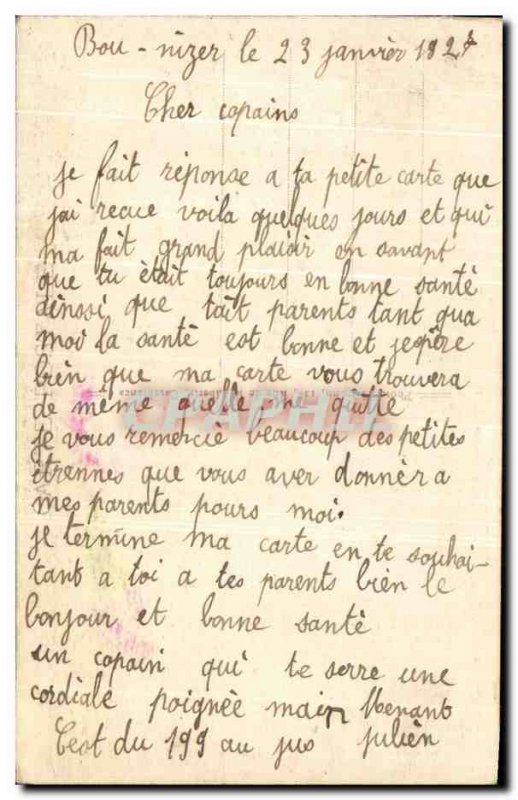 Bou-nizer le 23 janvier 192
Cher copains
je fait réponse a ta petite carte que
jai recue voila quelques jours et qui
ma fait grand plaisir en savant
que tu était toujours en bonne santé
ainssi que tait parents tant qua
moi la santé est bonne et jespère
bien que ma carte vous trouvera
de même quelle me quitte
CPAPHIL
je vous remercie beaucoup des petites
étrennes que vous aver donnèr a
mes parents pours moi.
je termine ma carte en te souhai-
tant a toi a tes parents bien le
bonjour et bonne santé
un copain qui te serre une
cordiale poignée main Menant
Cest du 199 au jus julien